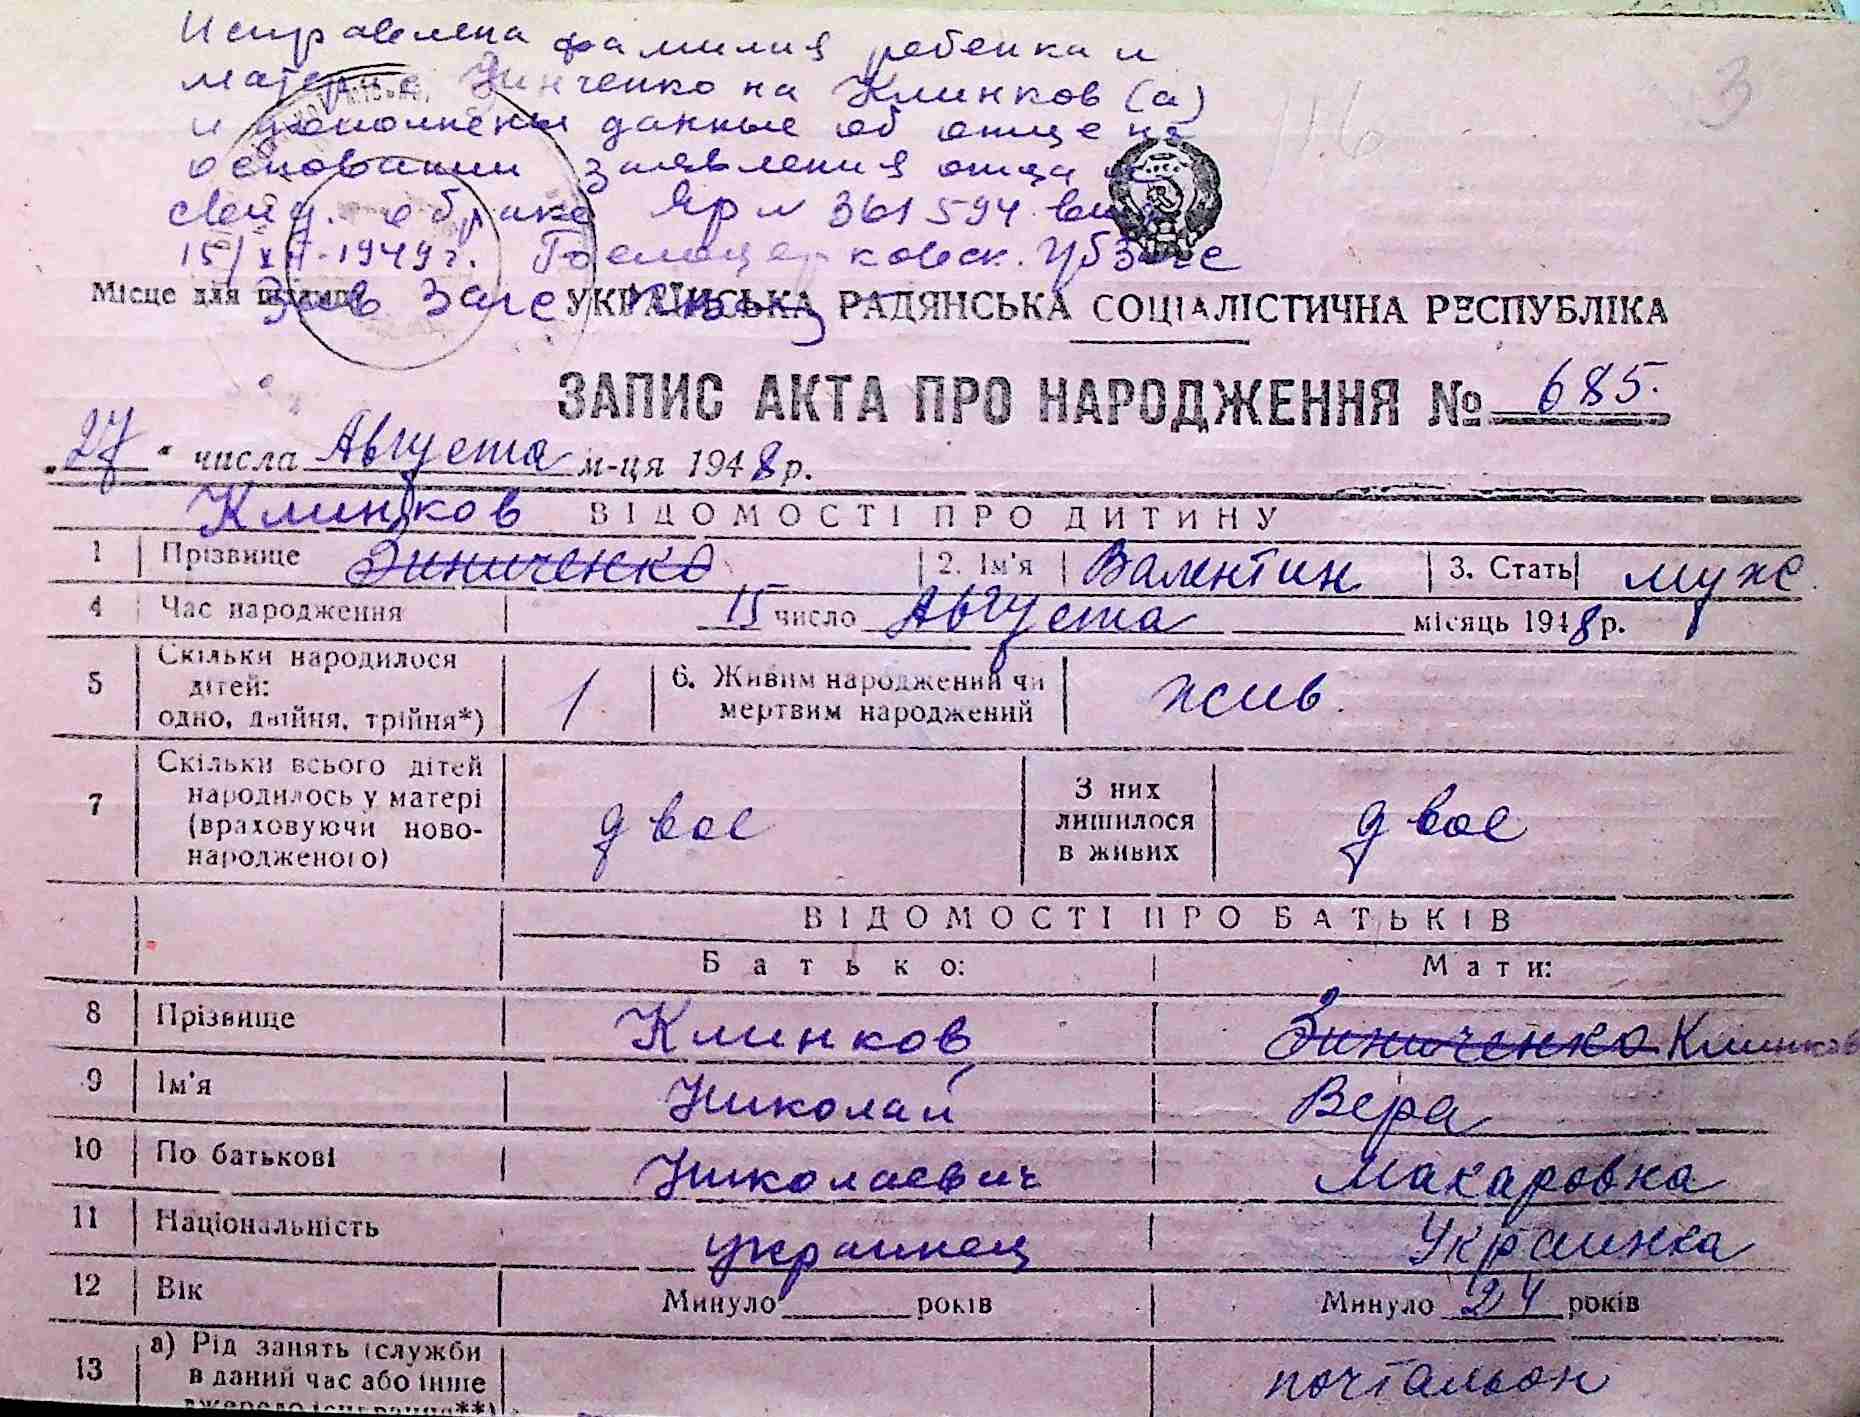 Исправлена фамилия ребенка и
матери с Зинченко на Клинков (а)
и дополнены данные об отце на
основании заявления отца и
свид. о браке Яр № 361594 выд.
15/XII-1949 г. Белоцерковск. ГрбЗагс
Місце для штампа Зав Загс УКРАЇНСЬКА РАДЯНСЬКА СОЦІАЛІСТИЧНА РЕСПУБЛІКА
116
3
ЗАПИС АКТА ПРО НАРОДЖЕННЯ № 685.
„27“ числа Августа м-ця 1948 р.
Клинков ВІДОМОСТІ ПРО ДИТИНУ
1 Прізвище Зиниченко 2. Ім'я Валентин 3. Стать муж.
4 Час народження 15 число Августа місяць 1948 р.
5 Скільки народилося
дітей:
одно, двійня, трійня*) 1 6. Живим народжений чи
мертвим народжений жив.
7 Скільки всього дітей
народилось у матері
(враховуючи ново-
народженого) двое З них
лишилося
в живих двое
ВІДОМОСТІ ПРО БАТЬКІВ
Батько: Мати:
8 Прізвище Клинков Зиниченко Клинков
9 Ім'я Николай Вера
10 По батькові Николаевич Макаровна
11 Національність украинец Украинка
12 Вік Минуло років Минуло 24 років
13 а) Рід занять (служби
в даний час або інше
джерело існування**) почтальон